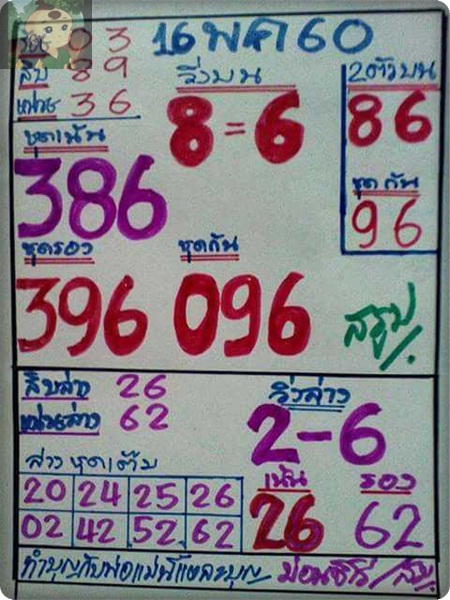 16 พค 60
ร้อย 0 3
สิบ 8 9
หน่วย 3 6
วิ่งบน
8=6
2ตัวบน
86
ชุดเน้น
386
ชุดกัน
96
ชุดรอง
396
ชุดกัน
096
สรุป
สิบล่าง 26
หน่วยล่าง 62
วิ่งล่าง
2-6
ล่าง ชุดเต็ม
20 24 25 26
02 42 52 62
เน้น
26
รอง
62
ทำบุญกับพ่อแม่นี่แหละบุญ